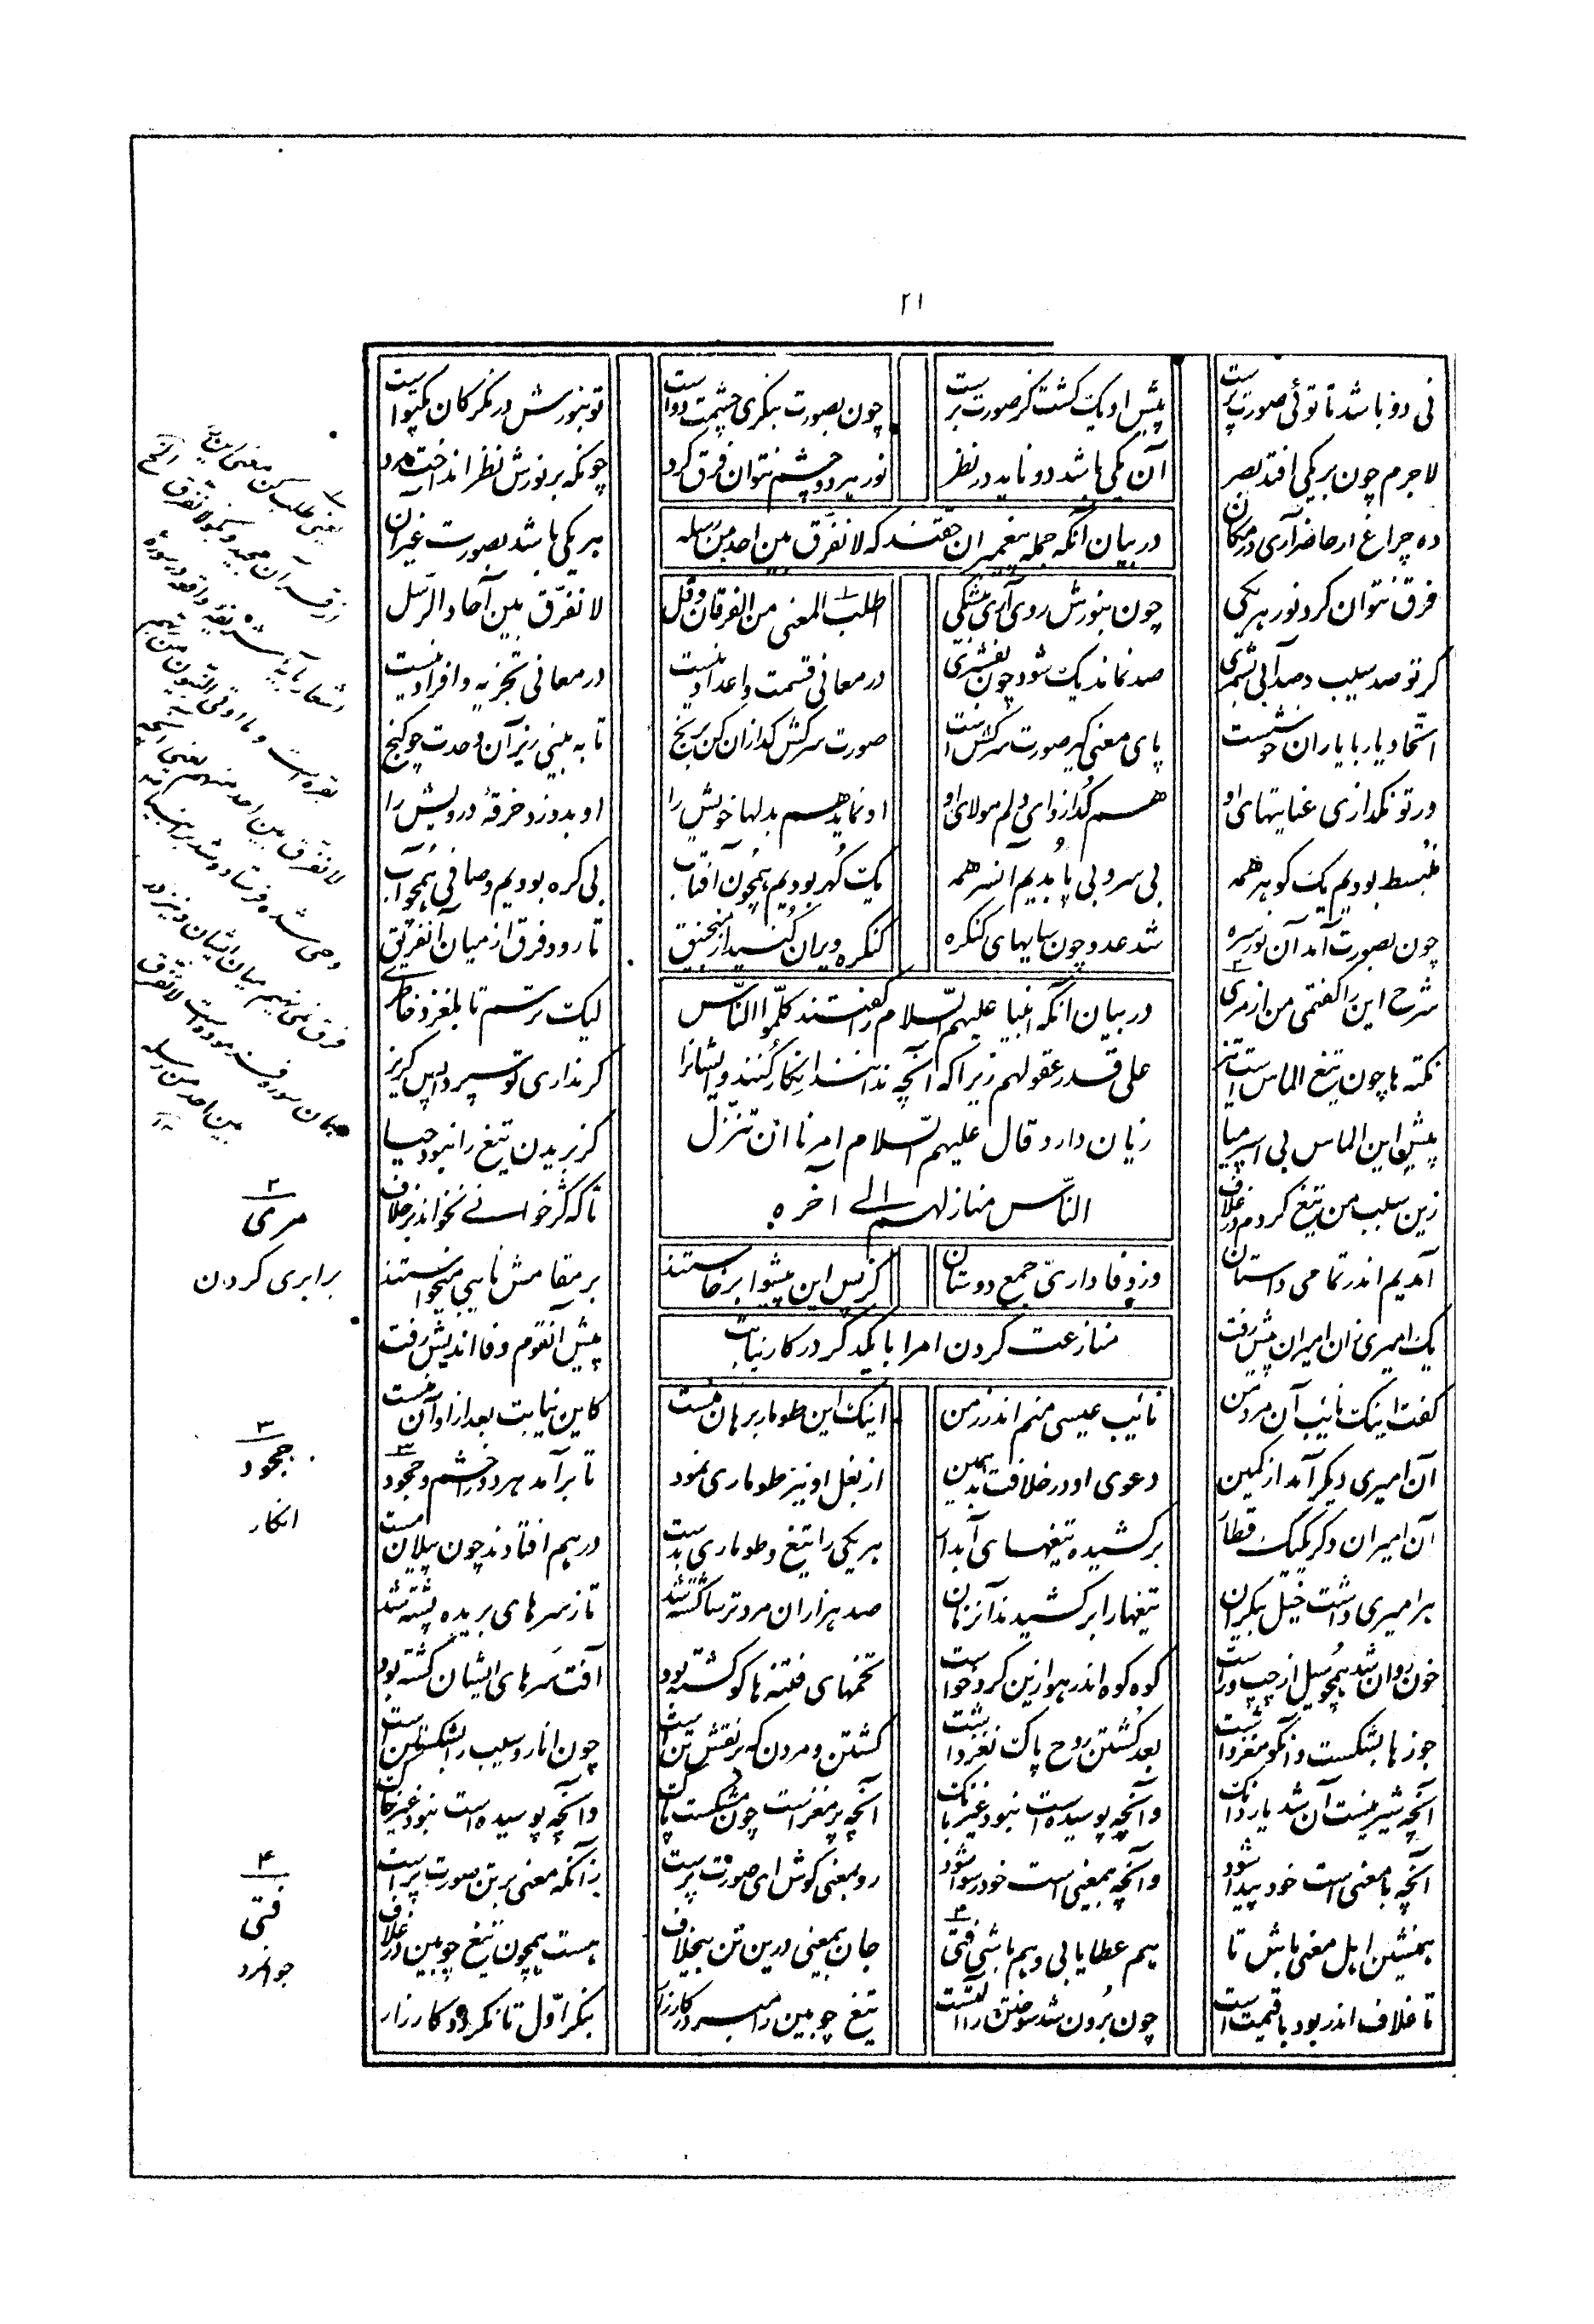 ۲۱
نی دو باشد تا توئی صورت پرست پیش او یک گشت کز صورت برست چون بصورت بنگری چشمت دو است تو بنورش در نگر کان یکتو است
لاجرم چون بر یکی افتد بصر آن یکی باشد دو ناید در نظر نور هر دو چشم نتوان فرق کرد چونکه بر نورش نظر انداخت مرد
در بیان آنکه جمله پیغمبران حقند که لا نفرق بین احد من رسله
ده چراغ ار حاضر آری در مکان هر یکی باشد بصورت غیر آن
فرق نتوان کرد نور هر یکی چون بنورش روی آری بیشکی اطلب المعنی من الفرقان و قل لا نفرّق بین آحاد الرسل
گر تو صد سیب و صد آبی بشمری صد نماند یک شود چون بفشری در معانی قسمت و اعداد نیست در معانی تجزیه و افراد نیست
اتّحاد یار با یاران خوشست پای معنی گیر صورت سرکش است صورت سرکش گدازان کن برنج تا به بینی زیر آن وحدت چو گنج
ور تو نگدازی عنایتهای او هم گدازد ای دلم مولای او او نماید هم بدلها خویش را او بدوزد خرقهٔ درویش را
منبسط بودیم یک گوهر همه بی سر و بی پا بدیم آنسر همه یک گهر بودیم همچون آفتاب بی گره بودیم و صافی همچو آب
چون بصورت آمد آن نور سره شد عدد چون سایهای کنگره کنگره ویران کنید از منجنیق تا رود فرق از میان آنفریق
شرح این را گفتمی من از مری ۲ لیک ترسم تا نلغزد خاطری
در بیان آنکه انبیا علیهم السلام را گفتند کلّموا النّاس
علی قدر عقولهم زیرا که آنچه ندانند انکار کنند و ایشانرا
زیان دارد قال علیهم السلام امرنا ان تنزّل
النّاس منازلهم الی آخره
نکته ها چون تیغ الماس است تیز گر نداری تو سپر واپس گریز
پیش این الماس بی اسپر میا کز بریدن تیغ را نبود حیا
زین سبب من تیغ کردم در غلاف تا که کژ خوانی نخواند بر خلاف
آمدیم اندر تمامی داستان وز وفاداریّ جمع دوستان کز پس این پیشوا برخاستند بر مقامش نایبی میخواستند
منازعت کردن امرا با یکدگر در کار نیابت
یک امیری زان امیران پیش رفت پیش آنقوم وفا اندیش رفت
گفت اینک نایب آن مرد من نائیب عیسی منم اندر زمن اینک این طومار برهان منست کاین نیابت بعد ازو آن منست
آن امیری دیگر آمد از کمین دعوی او در خلافت بد همین از بغل او نیز طوماری نمود تا برآمد هر دو را خشم و جحود ۳
آن امیران دگر یک یک قطار برکشیده تیغهای آبدار هر یکی را تیغ و طوماری بدست درهم افتادند چون پیلان مست
هر امیری داشت خیل بیکران تیغها را برکشیدند آنزمان صد هزاران مرد ترسا کشته شد تا ز سرهای بریده پشته شد
خون روان شد همچو سیل از چپ و راست کوه کوه اندر هوا زین گرد خواست تخمهای فتنه ها کو کشته بود آفت سرهای ایشان گشته بود
جوزها بشکست و آنکو مغز داشت بعد کشتن روح پاک نغز داشت کشتن و مردن که بر نقش تن است چون انار و سیب را بشکستن است
آنچه شیرینست آن شد یار دانک وانچه پوسیده است نبود غیر بانک آنچه پر مغز است چون مشکست پاک وآنچه پوسیده است نبود غیر خاک
آنچه با معنی است خود پیدا شود وآنچه بیمعنی است خود رسوا شود رو بمعنی کوش ای صورت پرست زانکه معنی بر تن صورت پر است
همنشین اهل معنی باش تا هم عطا یابی و هم باشی فتی ۴ جان بیمعنی درین تن بیخلاف هست همچون تیغ چوبین در غلاف
تا غلاف اندر بود با قیمت است چون برون شد سوختن را آلتست تیغ چوبین را مبر در کارزار بنگر اوّل تا نگردد کار زار
۱
یعنی طلب کن معنی این را
از قرآن مجید و بگو لا نفرق الخ
اشعار بآیه شریفه واقعه در سوره
بقره است و ما اوتی النبیون من ربهم
لا نفرق بین احد منهم یعنی
فرق نمی نهیم میان ایشان و نیز در
همان سوره فرموده است لا نفرق
بین احد من رسله
۲
مری
برابری کردن
۳
جحود
انکار
۴
فتی
جوانمرد